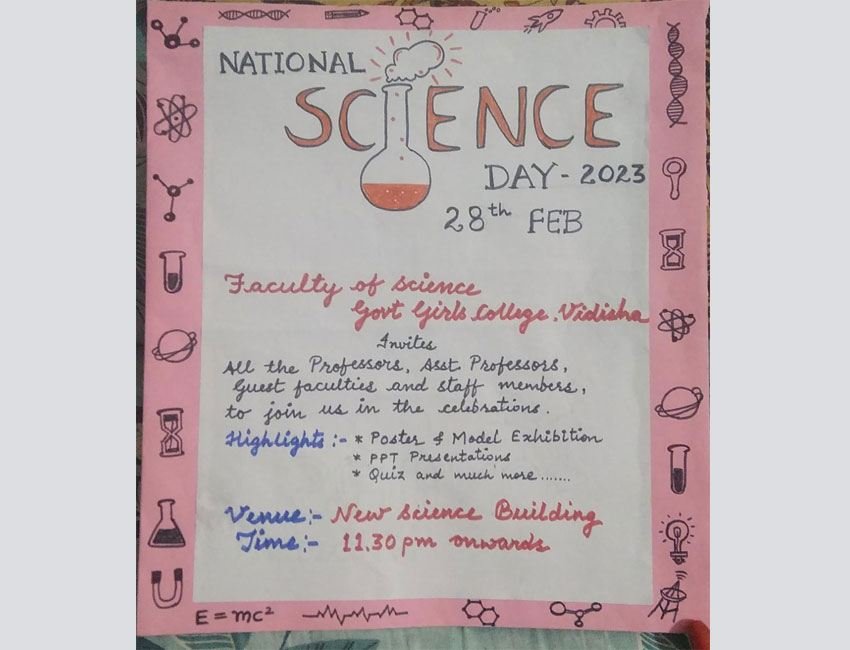 NATIONAL
SCIENCE
DAY - 2023
28th FEB
Faculty of science
Govt Girls College. Vidisha
Invites
All the Professors, Asst Professors,
Guest faculties and staff members,
to join us in the celebrations.
Highlights :- * Poster & Model Exhibition
* PPT Presentations
* Quiz and much more .......
Venue:- New Science Building
Time:- 11.30 pm onwards
E = mc²